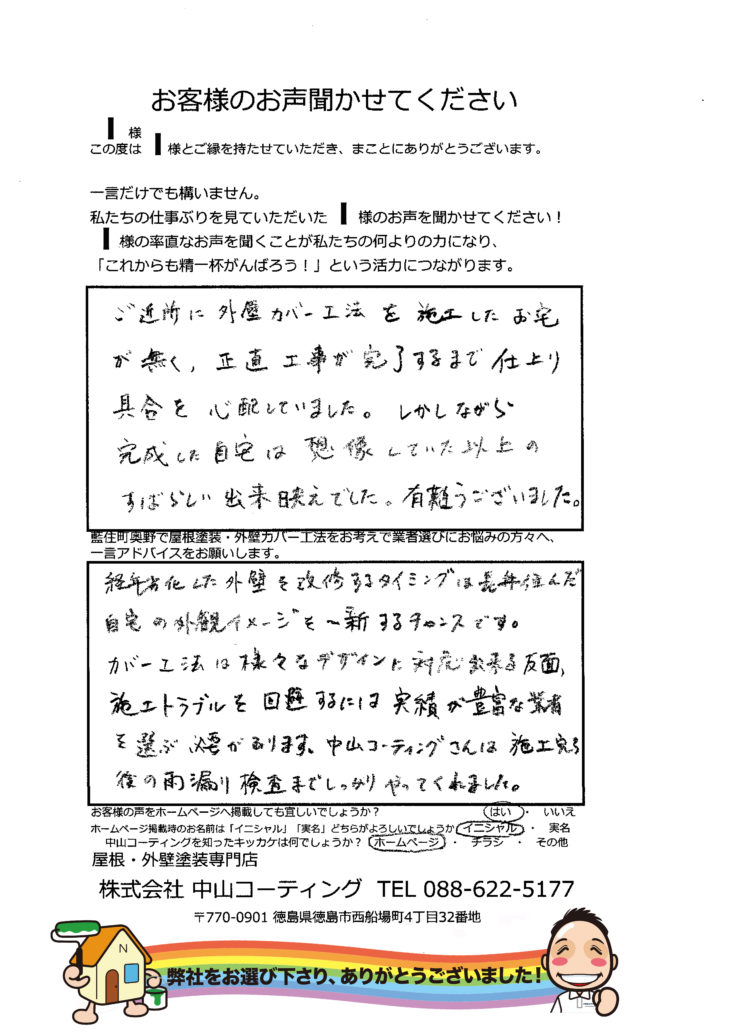 お客様のお声聞かせてください
I 様
この度は I 様とご縁を持たせていただき、まことにありがとうございます。
一言だけでも構いません。
私たちの仕事ぶりを見ていただいた I 様のお声を聞かせてください！
I 様の率直なお声を聞くことが私たちの何よりの力になり、
「これからも精一杯がんばろう！」という活力につながります。
ご近所に外壁カバー工法を施工したお宅
が無く、正直工事が完了するまで仕上り
具合を心配していました。しかしながら
完成した自宅は想像していた以上の
すばらしい出来映えでした。有難うございました。
藍住町奥野で屋根塗装・外壁カバー工法をお考えで業者選びにお悩みの方々へ、
一言アドバイスをお願いします。
経年劣化した外壁を改修するタイミングは長年住んだ
自宅の外観イメージを一新するチャンスです。
カバー工法は様々なデザインに対応出来る反面、
施工トラブルを回避するには実績が豊富な業者
を選ぶ必要があります、中山コーティングさんは施工完了
後の雨漏り検査までしっかりやってくれました。
お客様の声をホームページへ掲載しても宜しいでしょうか？ はい ・ いいえ
ホームページ掲載時のお名前は「イニシャル」「実名」どちらがよろしいでしょうか イニシャル ・ 実名
中山コーティングを知ったキッカケは何でしょうか？ ホームページ ・ チラシ ・ その他
屋根・外壁塗装専門店
株式会社 中山コーティング TEL 088-622-5177
〒770-0901 徳島県徳島市西船場町4丁目32番地
N
弊社をお選び下さり、ありがとうございました！